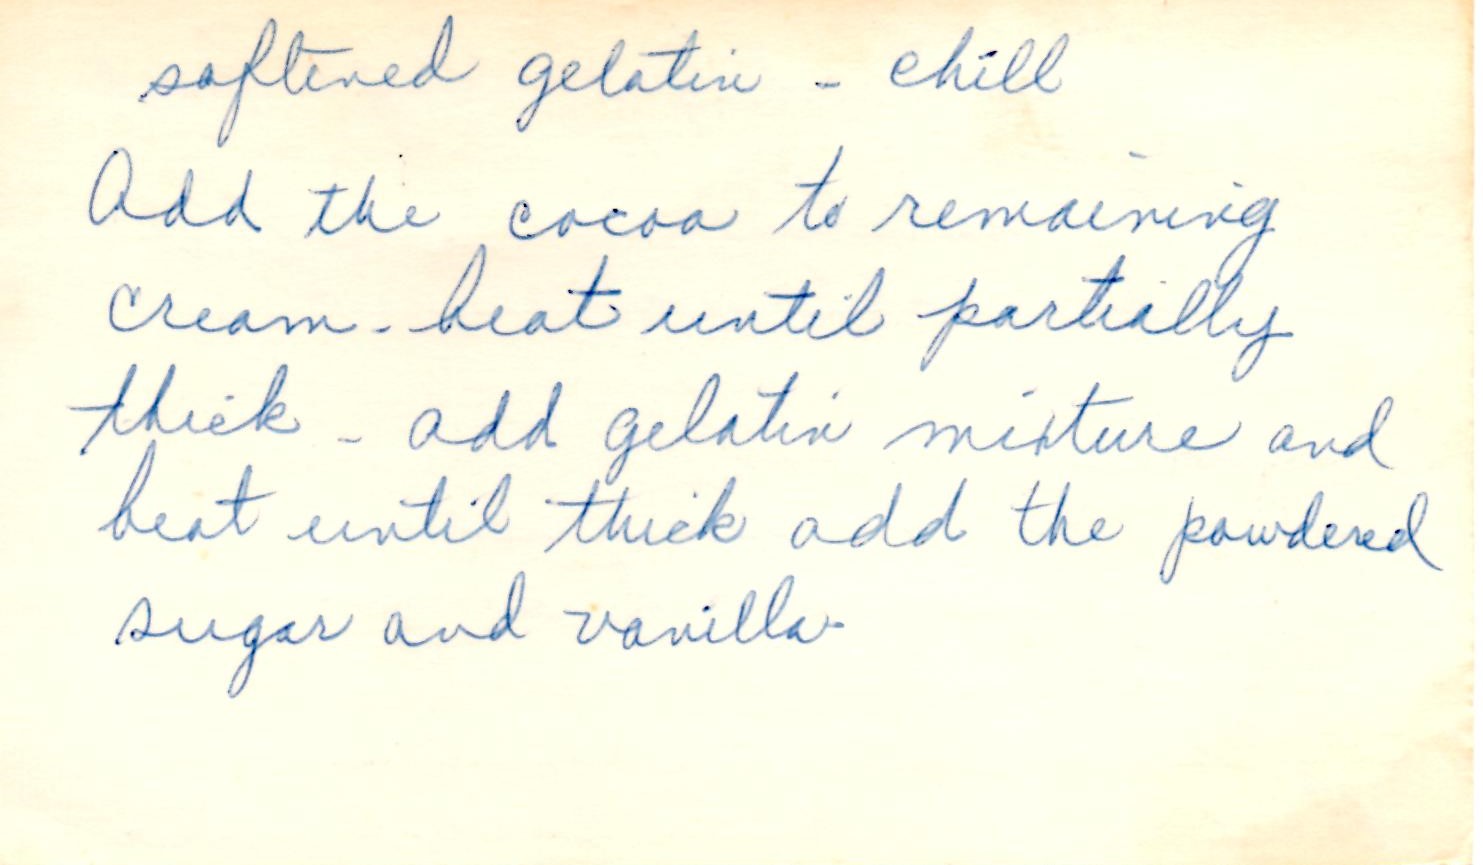 softened gelatin - chill
Add the cocoa to remaining
cream - beat until partially
thick - add gelatin mixture and
beat until thick add the powdered
sugar and vanilla.